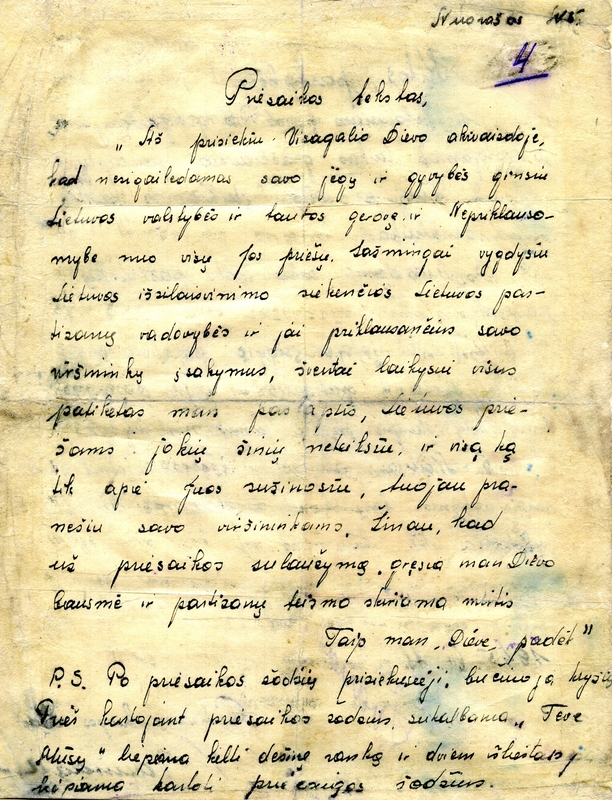 Nuorašas
4
Priesaikos tekstas,
„Aš prisiekiu Visagalio Dievo akivaizdoje,
kad nesigailėdamas savo jėgų ir gyvybės ginsiu
Lietuvos valstybės ir tautos gerovę ir Nepriklauso-
mybę nuo visų Jos priešų. Sąžiningai vygdysiu
Lietuvos išsilaisvinimo siekenčios Lietuvos par-
tizanų vadovybės ir jai priklausančius savo
viršininkų įsakymus, šventai laikysiu visas
patikėtas man paslaptis, Lietuvos prie-
šams jokių žinių neteiksiu, ir visą ką
tik apie Juos sužinosiu, tuojau pra-
nešiu savo viršininkams. Žinau, kad
už priesaikos sulaužymą gręsia man Dievo
bausmė ir partizanų teismo skiriama mirtis
Taip man, Dieve, padėk"
P.S. Po priesaikos žodžių prisiekusieji bučiuoja kryžių
Prieš kartojant priesaikos žodžius, sukalbama „Tėve
Mūsų" liepiama kelti dešinę ranką ir dviem
liepiama kartoti žodžius.